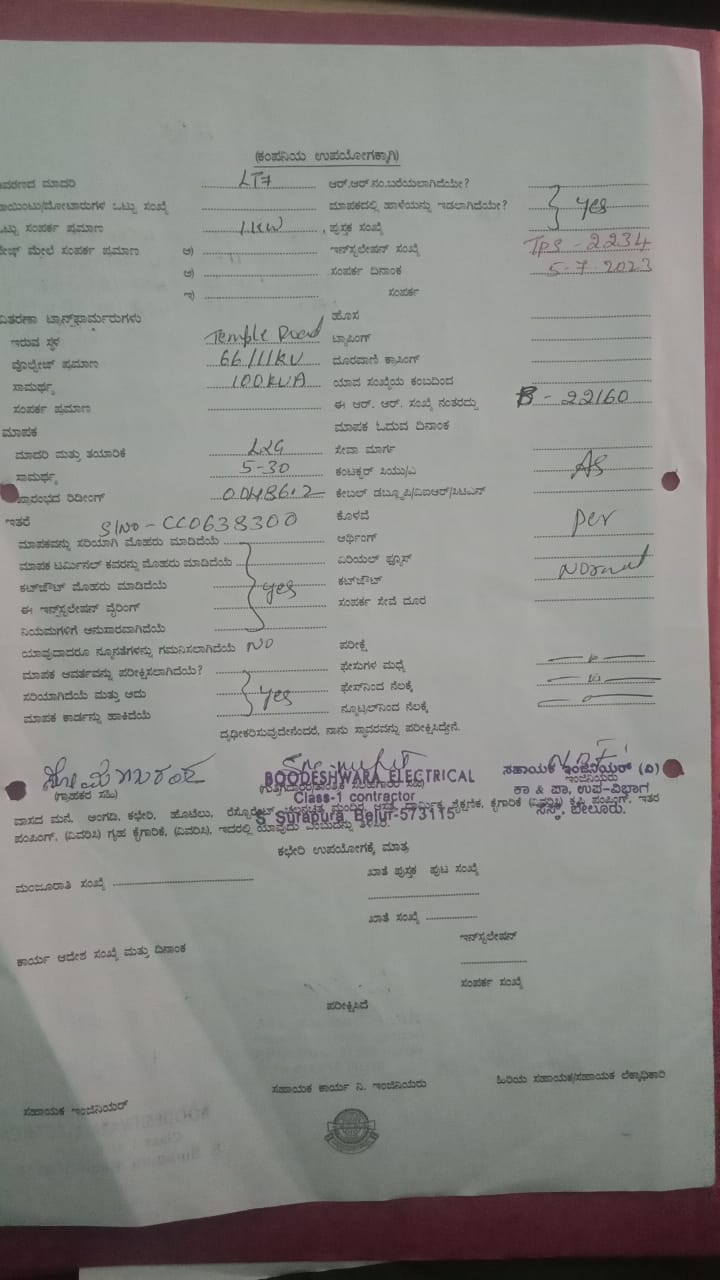 (ಕಂಪನಿಯ ಉಪಯೋಗಕ್ಕಾಗಿ)
ಮಾದರಿ LT7 ಆರ್.ಆರ್.ನಂ.ಬರೆಯಲಾಗಿದೆಯೇ?
ಒಟ್ಟು ಸಂಖ್ಯೆ ಮಾಪಕದಲ್ಲಿ ಹಾಳೆಯನ್ನು ಇಡಲಾಗಿದೆಯೇ? yes
ಸಂಪರ್ಕ ಪ್ರಮಾಣ 1KW ಪುಸ್ತಕ ಸಂಖ್ಯೆ
ಮೇಲೆ ಸಂಪರ್ಕ ಪ್ರಮಾಣ ಅ) ಇನ್‌ಸ್ಟಲೇಷನ್ ಸಂಖ್ಯೆ TPS - 2234
ಆ) ಸಂಪರ್ಕ ದಿನಾಂಕ 5-7-2023
ಇ) ಸಂಪರ್ಕ
ಹೊಸ
ಇರುವ ಸ್ಥಳ Temple Road ಟ್ಯಾಪಿಂಗ್
ವೊಲ್ಟೇಜ್ ಪ್ರಮಾಣ 66/11KV ದೂರವಾಣಿ ಕ್ರಾಸಿಂಗ್
ಸಾಮರ್ಥ್ಯ 100KVA ಯಾವ ಸಂಖ್ಯೆಯ ಕಂಬದಿಂದ
ಸಂಪರ್ಕ ಪ್ರಮಾಣ ಈ ಆರ್. ಆರ್. ಸಂಖ್ಯೆ ನಂತರದ್ದು B - 22160
ಮಾಪಕ ಮಾಪಕ ಓದುವ ದಿನಾಂಕ
ಮಾದರಿ ಮತ್ತು ತಯಾರಿಕೆ L&G ಸೇವಾ ಮಾರ್ಗ
ಸಾಮರ್ಥ್ಯ 5-30 ಕಂಟಕ್ಟರ್ ಸಿಯು/ಎ As
ಪ್ರಾರಂಭದ ರಿಡಿಂಗ್ ಕೇಬಲ್ ಡಬ್ಲ್ಯೂಪಿ/ವಿಐಆರ್/ಸಿಟಿಎನ್
ಇತರೆ S/NO - CC0638300 ಕೊಳವೆ per
ಮಾಪಕವನ್ನು ಸರಿಯಾಗಿ ಮೊಹರು ಮಾಡಿದೆಯೆ ಅರ್ಥಿಂಗ್
ಮಾಪಕ ಟರ್ಮಿನಲ್ ಕವರನ್ನು ಮೊಹರು ಮಾಡಿದೆಯೆ ಏರಿಯಲ್ ಫ್ಯೂಸ್ Normal
ಕಟ್‌ಔಟ್ ಮೊಹರು ಮಾಡಿದೆಯೆ yes ಕಟ್‌ಔಟ್
ಈ ಇನ್‌ಸ್ಟಲೇಷನ್ ವೈರಿಂಗ್ ಸಂಪರ್ಕ ಸೇವೆ ದೂರ
ನಿಯಮಗಳಿಗೆ ಅನುಸಾರವಾಗಿದೆಯೆ
ಯಾವುದಾದರೂ ನ್ಯೂನತೆಗಳನ್ನು ಗಮನಿಸಲಾಗಿದೆಯೆ NO ಪರೀಕ್ಷೆ
ಮಾಪಕ ಆವರ್ತವನ್ನು ಪರೀಕ್ಷಿಸಲಾಗಿದೆಯೆ? ಫೇಸುಗಳ ಮಧ್ಯೆ
ಸರಿಯಾಗಿದೆಯೆ ಮತ್ತು ಅದು yes ಫೇಸ್‌ನಿಂದ ನೆಲಕ್ಕೆ
ಮಾಪಕ ಕಾರ್ಡನ್ನು ಹಾಕಿದೆಯೆ ನ್ಯೂಟ್ರಲ್‌ನಿಂದ ನೆಲಕ್ಕೆ
ದೃಢೀಕರಿಸುವುದೇನೆಂದರೆ, ನಾನು ಸ್ಥಾವರವನ್ನು ಪರೀಕ್ಷಿಸಿದ್ದೇನೆ.
BOODESHWARA ELECTRICAL ಸಹಾಯಕ ಇಂಜಿನಿಯರ್ (ವಿ)
(ಗ್ರಾಹಕರ ಸಹಿ) Class-1 contractor ಕಾ & ಪಾ, ಉಪ-ವಿಭಾಗ
S Surapura, Belur-573115 ಸೆಸ್ಕ್, ಬೇಲೂರು.
ವಾಸದ ಮನೆ, ಅಂಗಡಿ, ಕಛೇರಿ, ಹೋಟೆಲು, ಶೈಕ್ಷಣಿಕ, ಕೈಗಾರಿಕೆ (ವಿವರಿಸಿ) ಕೃಷಿ ಪಂಪಿಂಗ್, ಇತರ
ಪಂಪಿಂಗ್, (ವಿವರಿಸಿ) ಗೃಹ ಕೈಗಾರಿಕೆ, (ವಿವರಿಸಿ), ಇದರಲ್ಲಿ ಯಾವುದು ಎಂಬುದನ್ನು ತಿಳಿಸಿರಿ.
ಕಛೇರಿ ಉಪಯೋಗಕ್ಕೆ ಮಾತ್ರ
ಮಂಜೂರಾತಿ ಸಂಖ್ಯೆ ಖಾತೆ ಪುಸ್ತಕ ಪುಟ ಸಂಖ್ಯೆ
ಖಾತೆ ಸಂಖ್ಯೆ
ಕಾರ್ಯ ಆದೇಶ ಸಂಖ್ಯೆ ಮತ್ತು ದಿನಾಂಕ ಇನ್‌ಸ್ಟಲೇಷನ್
ಸಂಪರ್ಕ ಸಂಖ್ಯೆ
ಪರೀಕ್ಷಿಸಿದೆ
ಸಹಾಯಕ ಇಂಜಿನಿಯರ್ ಸಹಾಯಕ ಕಾರ್ಯ ನಿ. ಇಂಜಿನಿಯರು ಹಿರಿಯ ಸಹಾಯಕ/ಸಹಾಯಕ ಲೆಕ್ಕಾಧಿಕಾರಿ